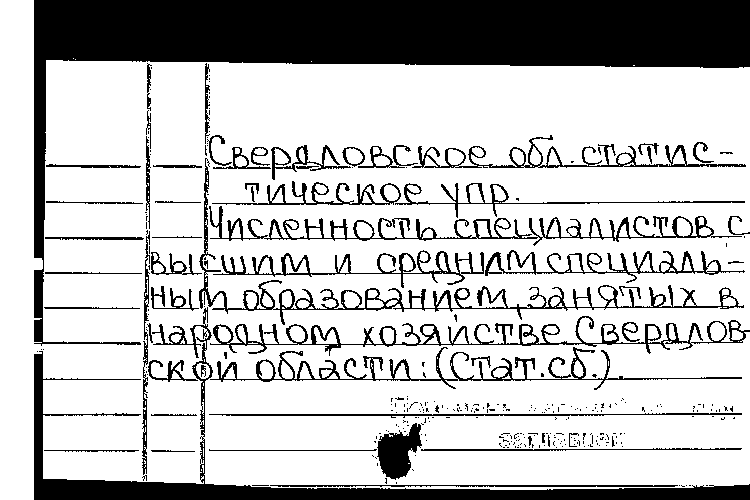 Свердловское обл. статис-
тическое упр.
Численность специалистов с
высшим и средним специаль-
ным образованием, занятых в
народном хозяйстве Свердлов-
ской области: (Стат. сб.).